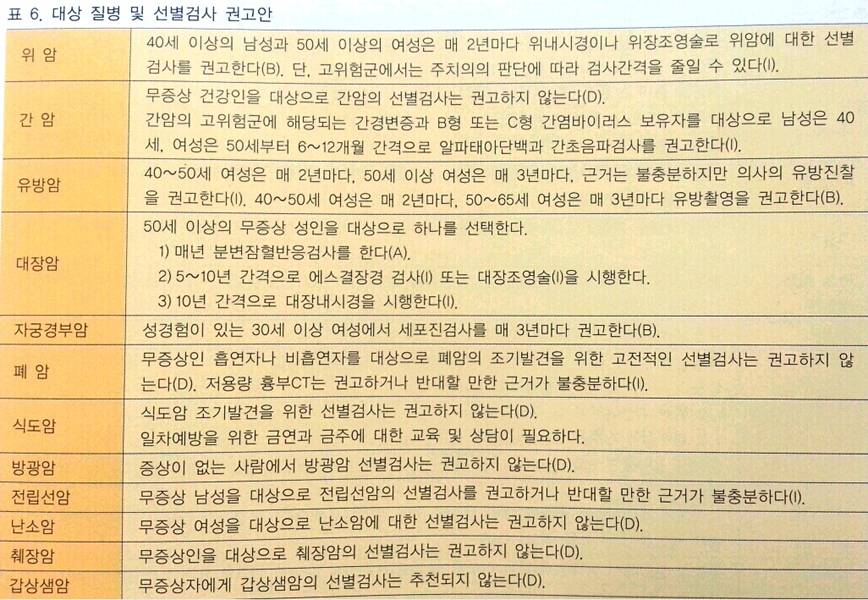 표 6. 대상 질병 및 선별검사 권고안
위 암
40세 이상의 남성과 50세 이상의 여성은 매 2년마다 위내시경이나 위장조영술로 위암에 대한 선별
검사를 권고한다(B). 단, 고위험군에서는 주치의의 판단에 따라 검사간격을 줄일 수 있다(I).
간 암
무증상 건강인을 대상으로 간암의 선별검사는 권고하지 않는다(D).
간암의 고위험군에 해당되는 간경변증과 B형 또는 C형 간염바이러스 보유자를 대상으로 남성은 40
세, 여성은 50세부터 6~12개월 간격으로 알파태아단백과 간초음파검사를 권고한다(I).
유방암
40~50세 여성은 매 2년마다, 50세 이상 여성은 매 3년마다, 근거는 불충분하지만 의사의 유방진찰
을 권고한다(I). 40~50세 여성은 매 2년마다, 50~65세 여성은 매 3년마다 유방촬영을 권고한다(B).
대장암
50세 이상의 무증상 성인을 대상으로 하나를 선택한다.
1) 매년 분변잠혈반응검사를 한다(A).
2) 5~10년 간격으로 에스결장경 검사(I) 또는 대장조영술(I)을 시행한다.
3) 10년 간격으로 대장내시경을 시행한다(I).
자궁경부암
성경험이 있는 30세 이상 여성에서 세포진검사를 매 3년마다 권고한다(B).
폐 암
무증상인 흡연자나 비흡연자를 대상으로 폐암의 조기발견을 위한 고전적인 선별검사는 권고하지 않
는다(D). 저용량 흉부CT는 권고하거나 반대할 만한 근거가 불충분하다(I).
식도암
식도암 조기발견을 위한 선별검사는 권고하지 않는다(D).
일차예방을 위한 금연과 금주에 대한 교육 및 상담이 필요하다.
방광암
증상이 없는 사람에서 방광암 선별검사는 권고하지 않는다(D).
전립선암
무증상 남성을 대상으로 전립선암의 선별검사를 권고하거나 반대할 만한 근거가 불충분하다(I).
난소암
무증상 여성을 대상으로 난소암에 대한 선별검사는 권고하지 않는다(D).
췌장암
무증상인을 대상으로 췌장암의 선별검사는 권고하지 않는다(D).
갑상샘암
무증상자에게 갑상샘암의 선별검사는 추천되지 않는다(D).